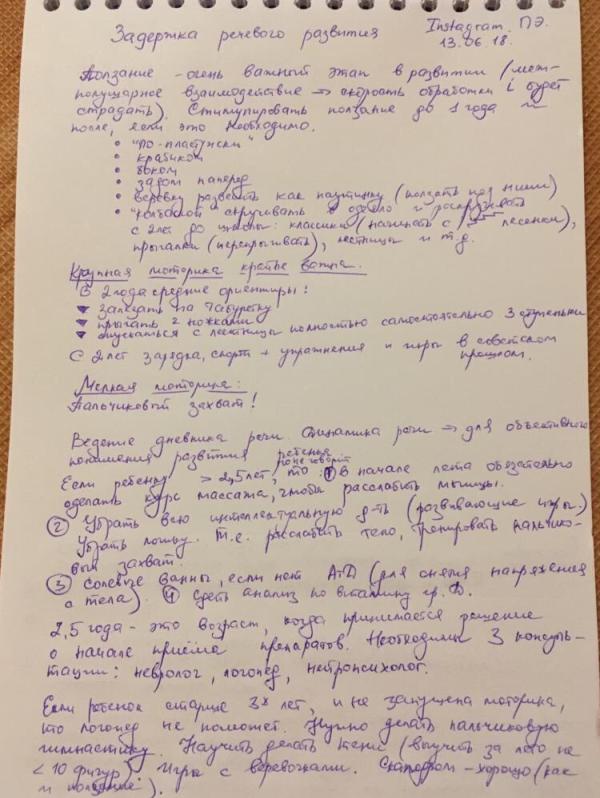 Задержка речевого развития
Instagram ПЭ.
13.06.18.
Ползание - очень важный этап в развитии (меж-
полушарное взаимодействие => скорость обработки i будет
страдать). Стимулировать ползание до 1 года и
после, если это необходимо.
• "по-пластунски"
• крабиком
• боком
• задом наперед
• веревку развесить как паутинку (ползать под ними)
• "колбасой" скручивать в одеяло и раскручивать
с 2 лет до школы: классики (начинать с лесенки),
прыгалки (перепрыгивать), лестницы и т.д.
Крупная моторика крайне важна.
В 2 года средние ориентиры:
залезать на табуретку
прыгать 2 ножками
спускаться с лестницы полностью самостоятельно 3 ступеньки
С 2 лет зарядка, спорт + упражнения и игры в советском
прошлом.
Мелкая моторика:
Пальчиковый захват!
Ведение дневника речи. Динамика речи => для объективного
понимания развития ребенка
Если ребенку > 2,5 лет, то: ① В начале лета обязательно
сделать курс массажа, чтобы расслабить мышцы.
② Убрать всю интеллектуальную д-ть (развивающие игры.)
Убрать Т.е. расслабить тело, тренировать пальчико-
вый захват.
③ Солевые ванны, если нет АтД (для снятия напряжения
с тела). ④ Сдать анализ по витамину гр. D.
2,5 года - это возраст, когда принимается решение
о начале приёма препаратов. Необходимы 3 консуль-
тации: невролог, логопед, нейропсихолог.
Если ребенок старше 3х лет, и не запущена моторика,
то логопед не поможет. Нужно делать пальчиковую
гимнастику. Научить делать тени (выучить за лето не
< 10 фигур). Игры с веревочками. Скалодром - хорошо (как
и ползание).